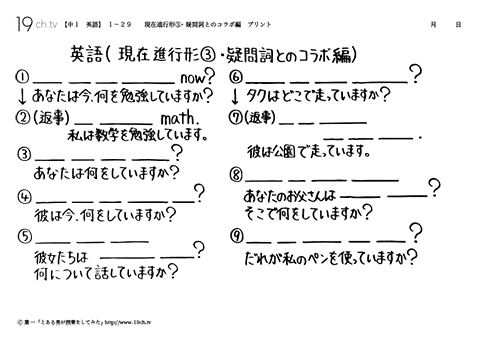 19ch.tv 【中1 英語】 1-29 現在進行形③・疑問詞とのコラボ編 プリント 月 日
英語(現在進行形③・疑問詞とのコラボ編)
① ___ ___ ___ ___ now?
↓あなたは今、何を勉強していますか?
②(返事) ___ ___ math.
私は数学を勉強しています。
③ ___ ___ ___ ___?
あなたは何をしていますか?
④ ___ ___ ___ ___ ___?
彼は今、何をしていますか?
⑤ ___ ___ ___
彼女たちは ___ ___?
何について話していますか?
⑥ ___ ___ ___ ___?
↓タクはどこで走っていますか?
⑦(返事) ___ ___ ___
___ ___ ___.
彼は公園で走っています。
⑧ ___ ___ ___ ___
あなたのお父さんは ___ ___?
そこで何をしていますか?
⑨ ___ ___ ___ ___ ___?
だれが私のペンを使っていますか?
© 葉一「とある男が授業をしてみた」http://www.19ch.tv